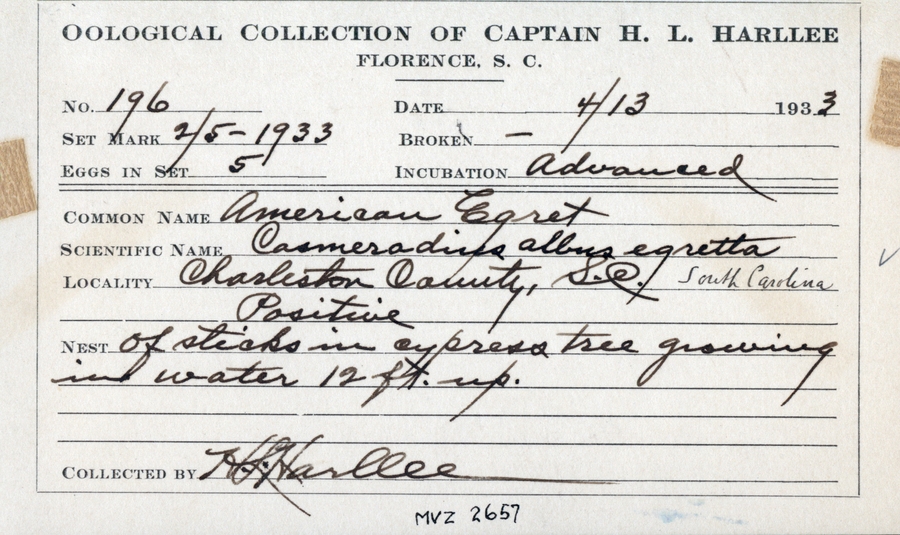 OOLOGICAL COLLECTION OF CAPTAIN H. L. HARLLEE
FLORENCE, S. C.
NO. 196 DATE 4/13 1933
SET MARK 2/5-1933 BROKEN —
EGGS IN SET 5 INCUBATION Advanced
COMMON NAME American Egret
SCIENTIFIC NAME Casmerodius albus egretta
LOCALITY Charleston County, S.C. South Carolina
Positive
NEST of sticks in cypress tree growing
in water 12 ft. up.
COLLECTED BY H.L. Harllee
MVZ 2657